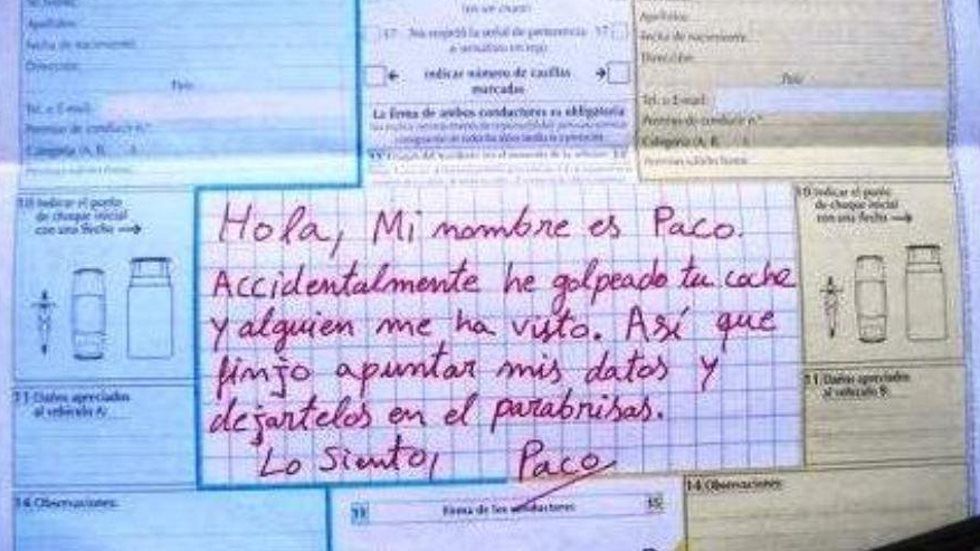 Apellidos:
Fecha de nacimiento:
Dirección:
País:
Tel. o E-mail:
Permiso de conducir n.º
Categoría (A, B, ...)
17
17
indicar número de casillas
marcadas
La firma de ambos conductores es obligatoria
Apellidos:
Fecha de nacimiento:
Dirección:
País:
Tel. o E-mail:
Permiso de conducir n.º
Categoría (A, B, ...)
10 Indicar el punto
de choque inicial
con una flecha →
Hola, Mi nombre es Paco.
Accidentalmente he golpeado tu coche
y alguien me ha visto. Así que
finjo apuntar mis datos y
dejartelos en el parabrisas.
Lo siento, Paco
10 Indicar el punto
de choque inicial
con una flecha →
11 Daños apreciados
al vehículo A:
11 Daños apreciados
al vehículo B:
14 Observaciones:
15 Firma de los conductores 15
14 Observaciones: